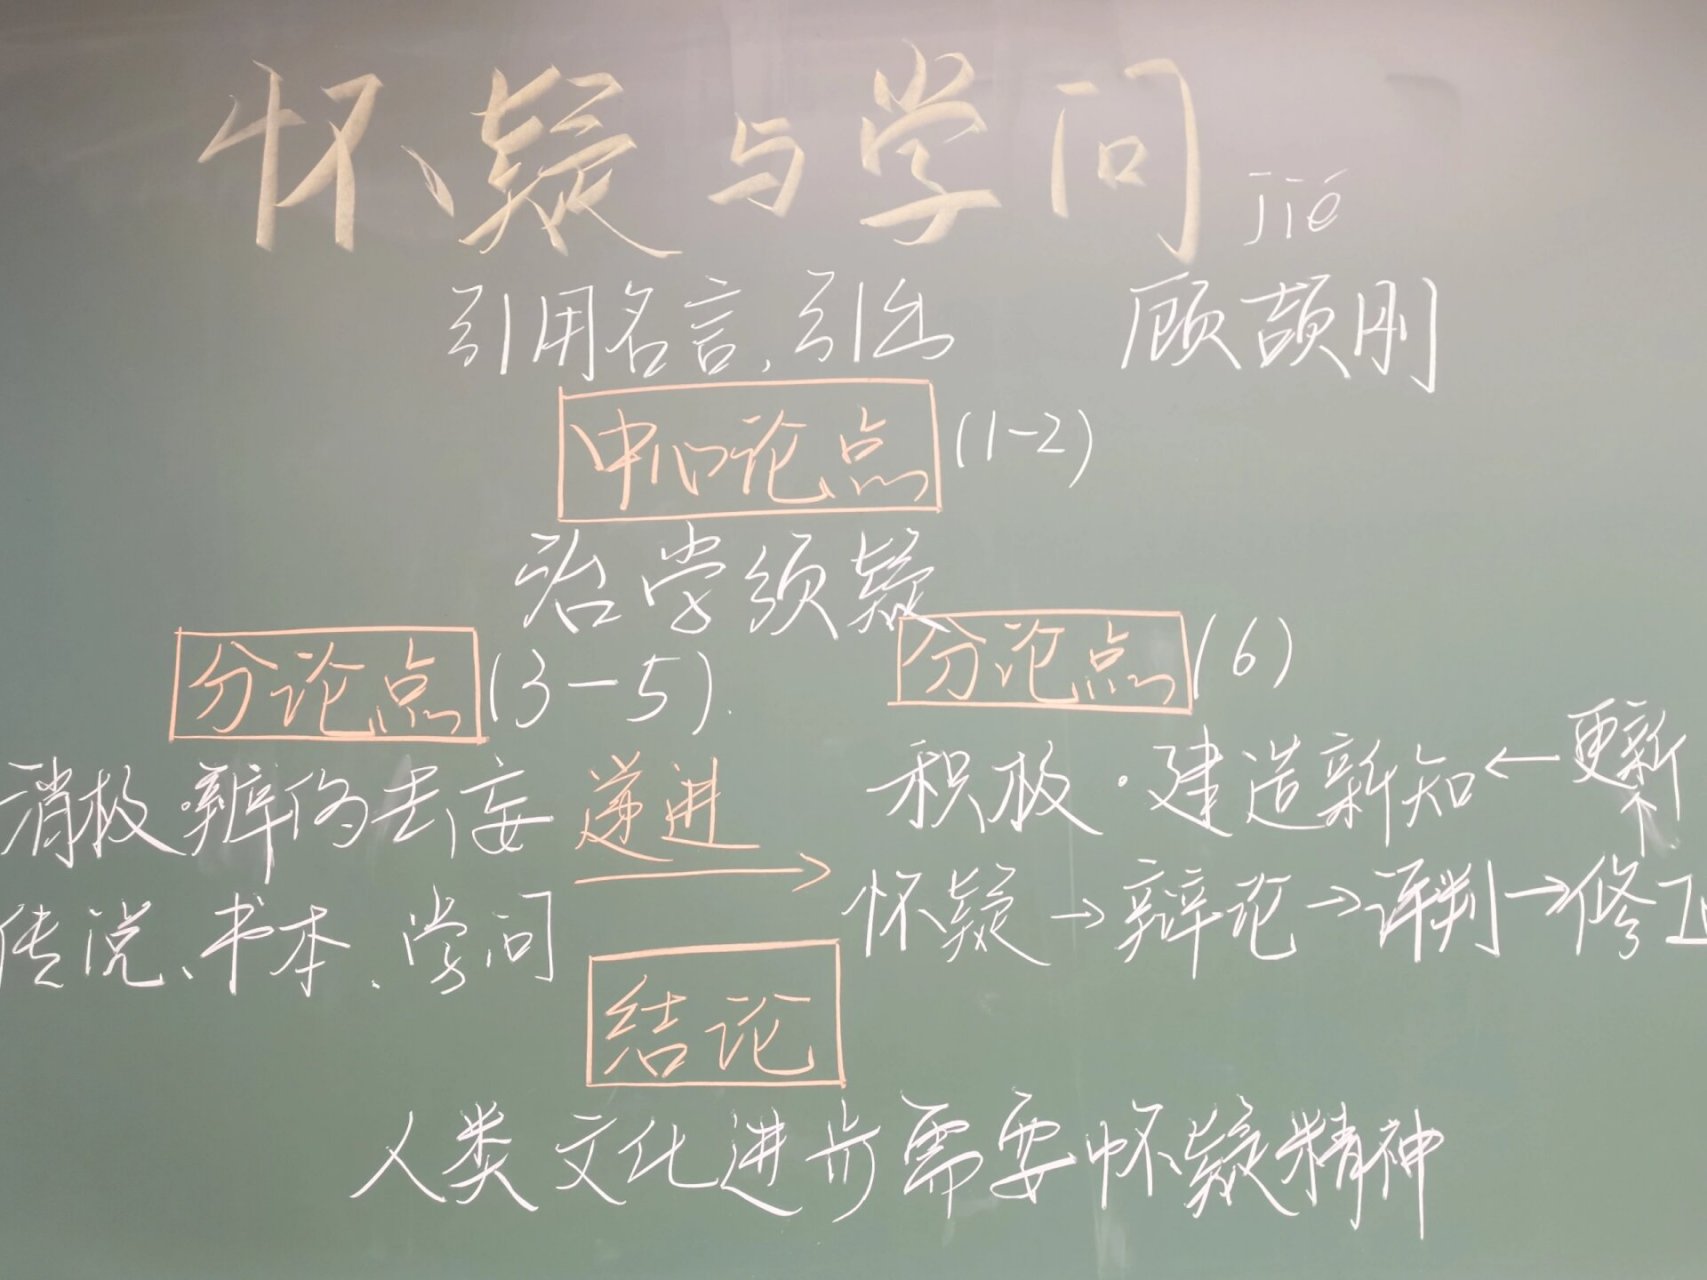 怀疑与学问
jié
引用名言,引出 顾颉刚
中心论点(1-2)
治学须疑
分论点(3-5). 分论点(6)
消极·辨伪去妄 递进 积极·建造新知←更新
传说、书本、学问 → 怀疑→辩论→评判→修正↑
结论
人类文化进步需要怀疑精神